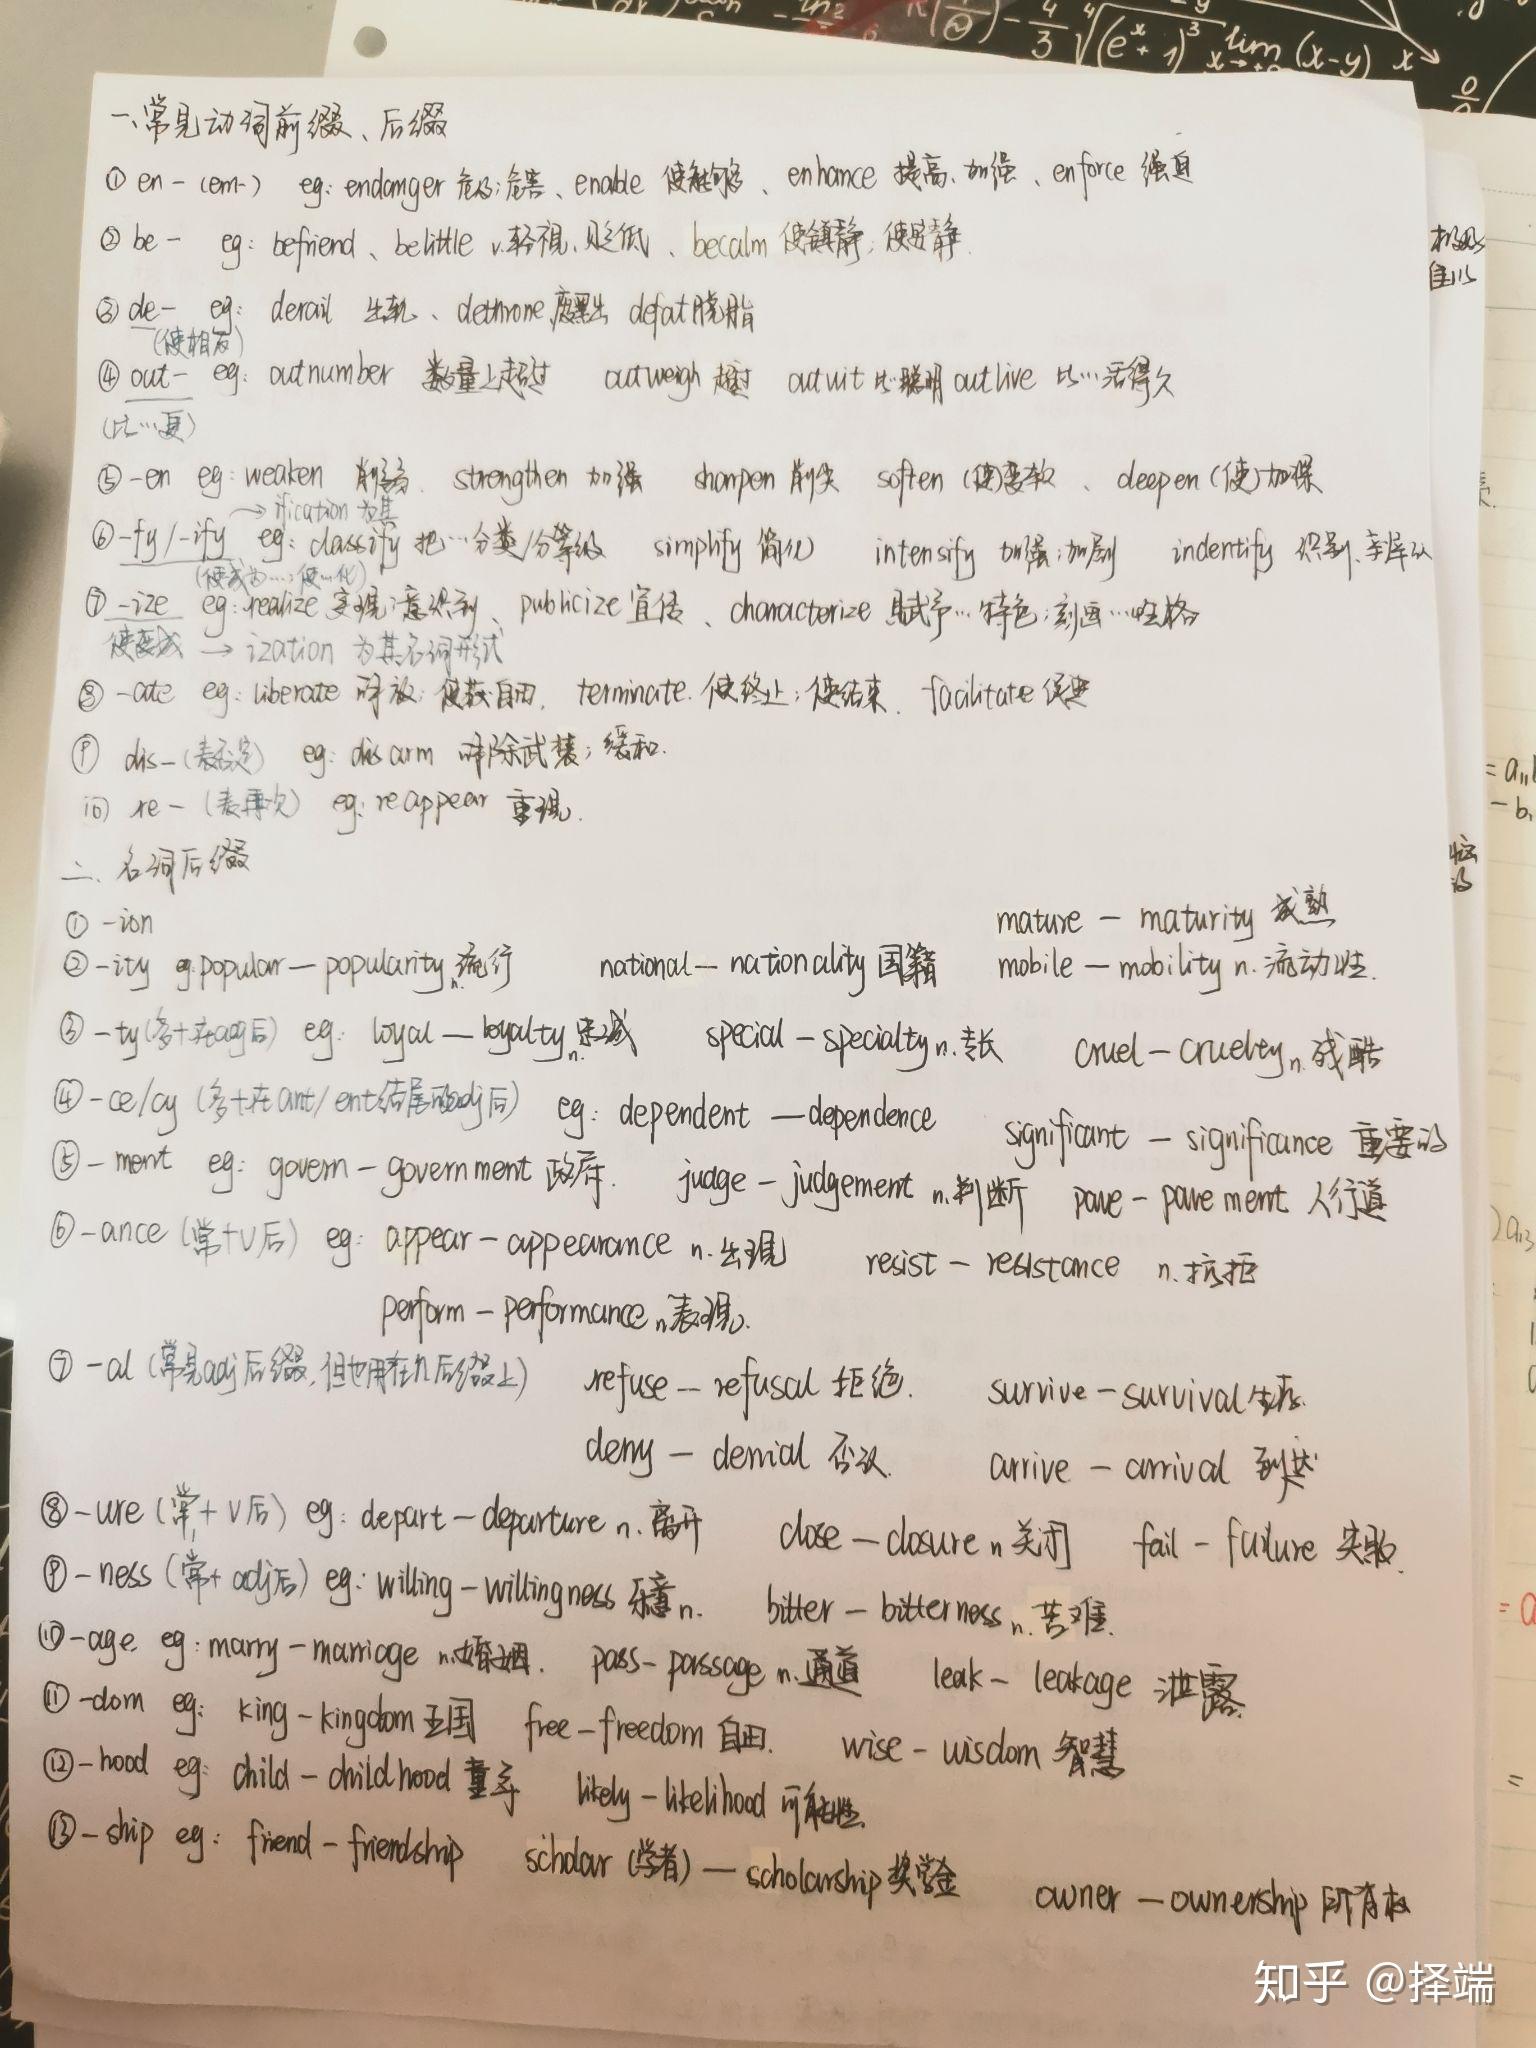 一、常见动词前缀、后缀
① en-(em-) eg: endanger 危及;危害、enable 使能够、enhance 提高、加强、enforce 强迫
② be- eg: befriend、belittle v.轻视、贬低、becalm 使镇静;使安静.
③ de- eg: derail 出轨、dethrone 废黜 defat 脱脂
(使相反)
④ out- eg: outnumber 数量上超过 outweigh 超过 outwit 比…聪明 outlive 比…活得久
(比…更)
⑤ -en eg: weaken 削弱. strengthen 加强 sharpen 削尖 soften (使)变软、deepen (使)加深
→ ification 为其
⑥ -fy/-ify eg: classify 把…分类/分等级 simplify 简化 intensify 加强;加剧 indentify 识别、辨认
(使成为…;使…化)
⑦ -ize eg: realize 实现;意识到、publicize 宣传、characterize 赋予…特色;刻画…性格
使变成 → ization 为其名词形式
⑧ -ate eg: liberate 解放;使获自由. terminate. 使终止;使结束. facilitate 促进
⑨ dis-(表否定) eg: disarm 解除武装;缓和.
⑩ re-(表再次) eg: reappear 重现.
二、名词后缀
① -ion
mature — maturity 成熟
② -ity eg. popular — popularity n. 流行 national — nationality 国籍 mobile — mobility n. 流动性.
③ -ty(多+在adj后) eg: loyal — loyalty n. 忠诚 special — specialty n. 专长 cruel — cruelty n. 残酷
④ -ce/cy (多+在ant/ent结尾的adj后) eg: dependent — dependence significant — significance 重要的
⑤ -ment eg: govern — government 政府. judge — judgement n.判断 pave — pavement 人行道
⑥ -ance (常+v后) eg: appear — appearance n. 出现 resist — resistance n.抗拒
perform — performance n.表现.
⑦ -al (常见adj后缀,但也用在n后缀上) refuse — refusal 拒绝. survive — survival 生存.
deny — denial 否认 arrive — arrival 到达
⑧ -ure (常+v后) eg: depart — departure n. 离开 close — closure n 关闭 fail — failure 失败.
⑨ -ness (常+adj后) eg: willing — willingness 乐意 n. bitter — bitterness n. 苦难.
⑩ -age. eg: marry — marriage n.婚姻. pass — passage n.通道 leak — leakage 泄露.
⑪ -dom eg: king — kingdom 王国 free — freedom 自由. wise — wisdom 智慧
⑫ -hood eg: child — childhood 童年 likely — likelihood 可能性.
⑬ -ship eg: friend — friendship scholar (学者) — scholarship 奖学金 owner — ownership 所有权
知乎 @择端